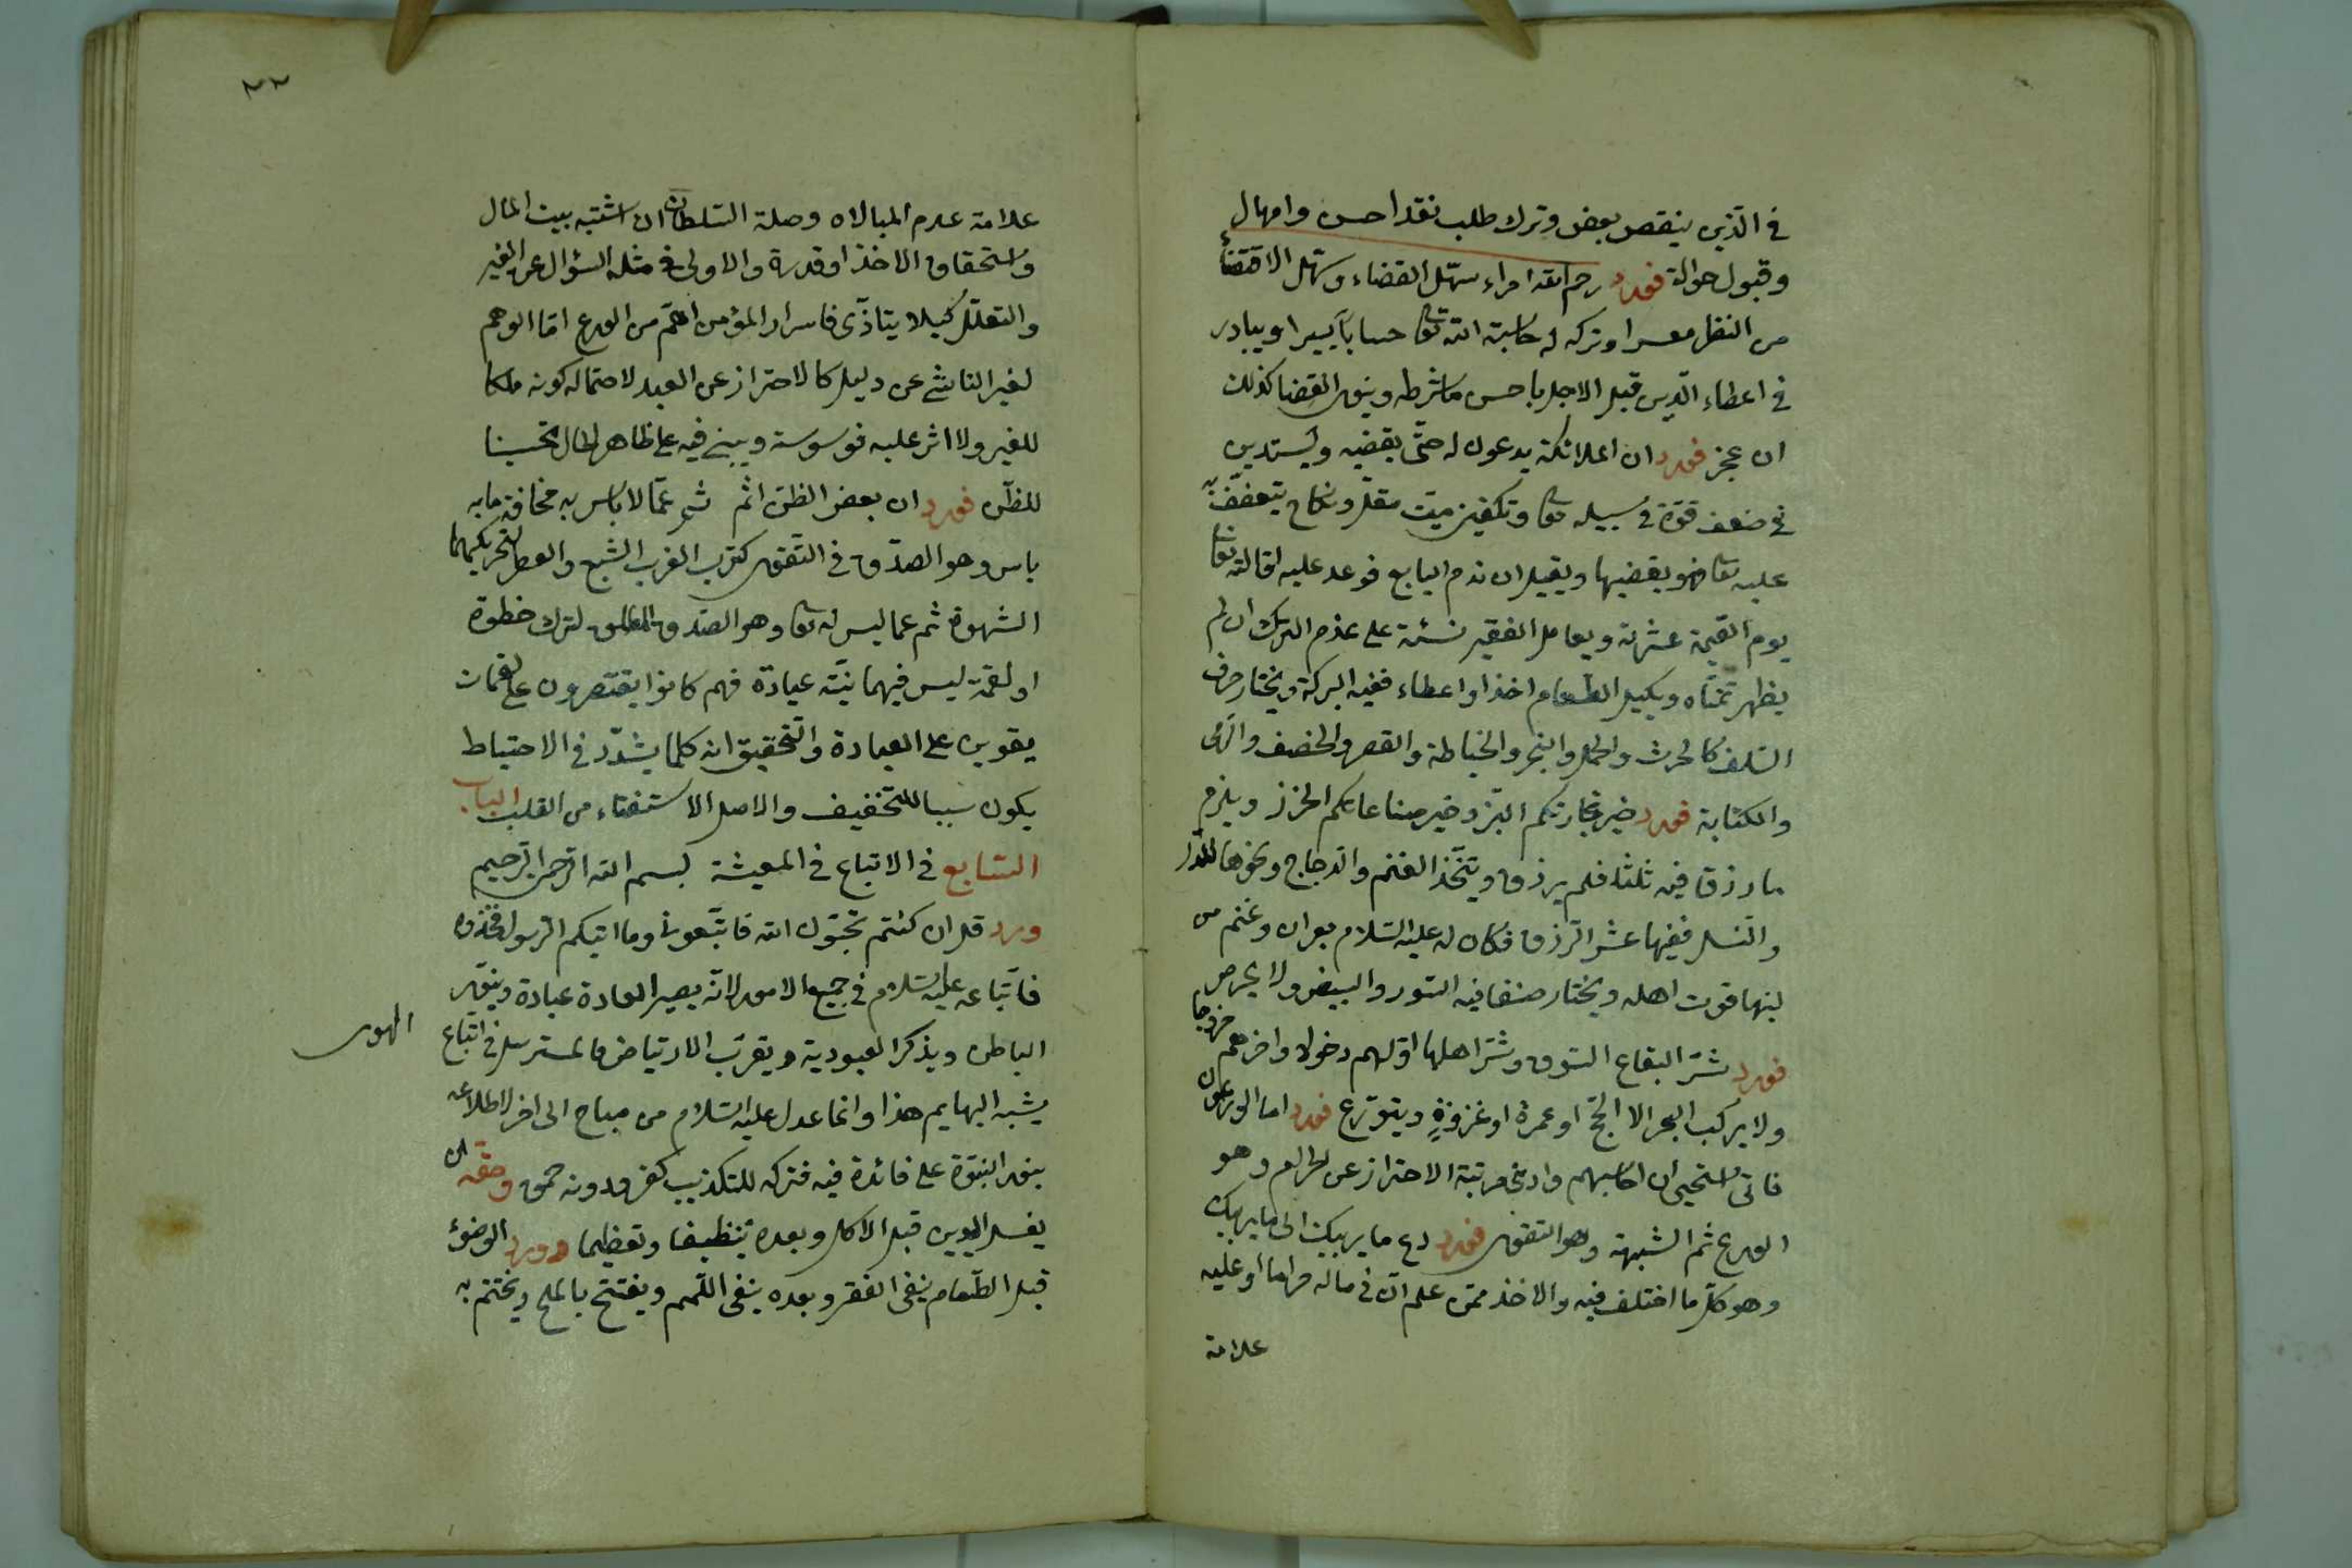 في الذين ينقص بعض وترك طلب نقد احسن وامهال
وقبول حوالة فورد رحم الله امراء سهل القضاء وسهل الاقتضاء
من انظر معسرا وترك له حاسبه الله تعا حسابا يسيرا ويبادر
في اعطاء الدين قبل الاجل باحسن ما شرطه وينوى القضا كذلك
ان عجز فورد ان الملائكة يدعون له حتى يقضيه ويستدين
في ضعف قوة في سبيله تعا وتكفين ميت مقل ونكاح يتعفف به
عليه تعا فهو يقضيها ويقيل ان ندم البايع فوعد عليه اقالته تعا
يوم القيمة عشرته ويعامل الفقير نسئة على عزم الترك ان لم
يظهر تمناه ويكيل الطعام اخذا واعطاء ففيه البركة ويختار حرف
السلف كالحرث والحمل والتجر والخياطة والقصر والخصف والرعى
والكتابة فورد خير تجارتكم البز وخير صناعاتكم الخرز ويلزم
ما رزق فيه ثلثا فلم يرزق ويتخذ الغنم والدجاج ونحوها للدر
والنسل ففيها عشر الرزق فكان له عليه السلام بعران وغنم من
لبنها قوت اهله ويختار صنفا فيه السود والبيض ولا يحرص
فورد شر البقاع السوق وشر اهلها اولهم دخولا واخرهم خروجا
ولا يركب البحر الا لحج او عمرة او غزوة ويتورع فورد اما الورعون
فانى استحيى ان احاسبهم وادنى مرتبة الاحتراز عن الحرام وهو
الورع ثم الشبهة وهو التقوى فورد دع ما يريبك الى ما لا يريبك
وهو كل ما اختلف فيه والاخذ ممن علم ان في ماله حراما او عليه
علامة
علامة عدم المبالاه وصلة السلطان ان اشتبه بيت المال
واستحقاق الاخذ او قدره والاولى في مثله السؤال عن الغير
والتعلل كيلا يتاذى فاسرار المؤمن اهم من الورع اما الوهم
لغير الناشئ عن دليل كالاحتراز عن الصيد لاحتماله كونه ملكا
للغير ولا اثر عليه فوسوسة ويبنى فيه على ظاهر الحال تحسينا
للظن فورد ان بعض الظن اثم ثم عما لا باس به مخافة ما به
باس وهو الصدق في التقوى كترب العزب الشبع والعطر لتحريكهما
الشهوة ثم عما ليس له تعا وهو الصدق المطلق لترك خطوة
او لقمة ليس فيهما نية عبادة فهم كانوا يقتصرون على لقمات
يقوين على العبادة والتحقيق ان كلما يشدد في الاحتياط
يكون سببا للتخفيف والاصل الاستفتاء من القلب الباب
السابع في الاتباع في المعيشة بسم الله الرحمن الرحيم
ورد قل ان كنتم تحبون الله فاتبعونى وما اتيكم الرسول فخذوه
فاتباعه عليه السلام في جميع الامور لانه يصير العادة عبادة وينور
الباطن ويذكر العبودية ويقرب الارتياض فالمسترسل في اتباع
الهوى
يشبه البهايم هذا وانما عدل عليه السلام من مباح الى اخر لاطلاعه
بنور النبوة على فائدة فيه فتركه للتكذيب كفر ودونه حمق وحقه ان
يغسل اليدين قبل الاكل وبعده تنظيفا وتعظيما وورد الوضوء
قبل الطعام ينفى الفقر وبعده ينفى اللمم ويفتتح بالملح ويختتم به